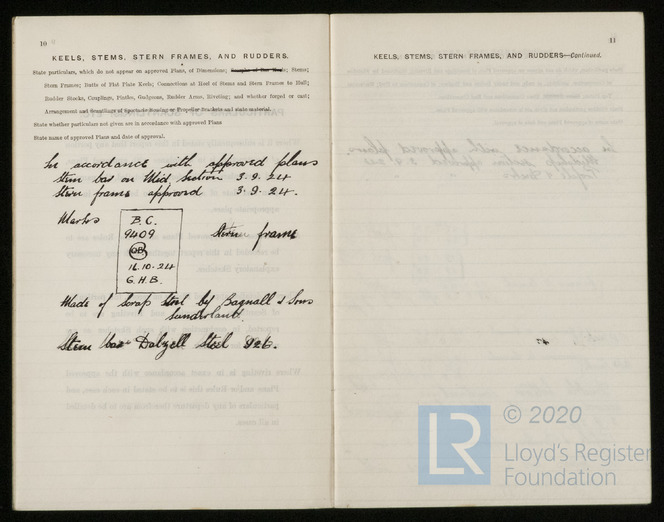 10
KEELS, STEMS, STERN FRAMES, AND RUDDERS.
State particulars, which do not appear on approved Plans, of Dimensions; Stems;
Stern Frames; Butts of Flat Plate Keels; Connections at Heel of Stems and Stern Frames to Hull;
Rudder Stocks, Couplings, Pintles, Gudgeons, Rudder Arms, Riveting; and whether forged or cast;
Arrangement and Scantlings of Spectacle Bossing or Propeller Brackets and state material.
State whether particulars not given are in accordance with approved Plans
State name of approved Plans and date of approval.
In accordance with approved plans
Stem bar on Mid. Section 3.9.24
Stern frame approved 3.9.24.
Marks
B.C.
9409
16.10.24
G.H.B.
Stern frame
Made of Scrap Steel by Bagnall & Sons
Sunderland.
Stem bar Dalzell Steel
11
KEELS, STEMS, STERN FRAMES, AND RUDDERS—Continued.
LR
© 2020
Lloyd's Register
Foundation